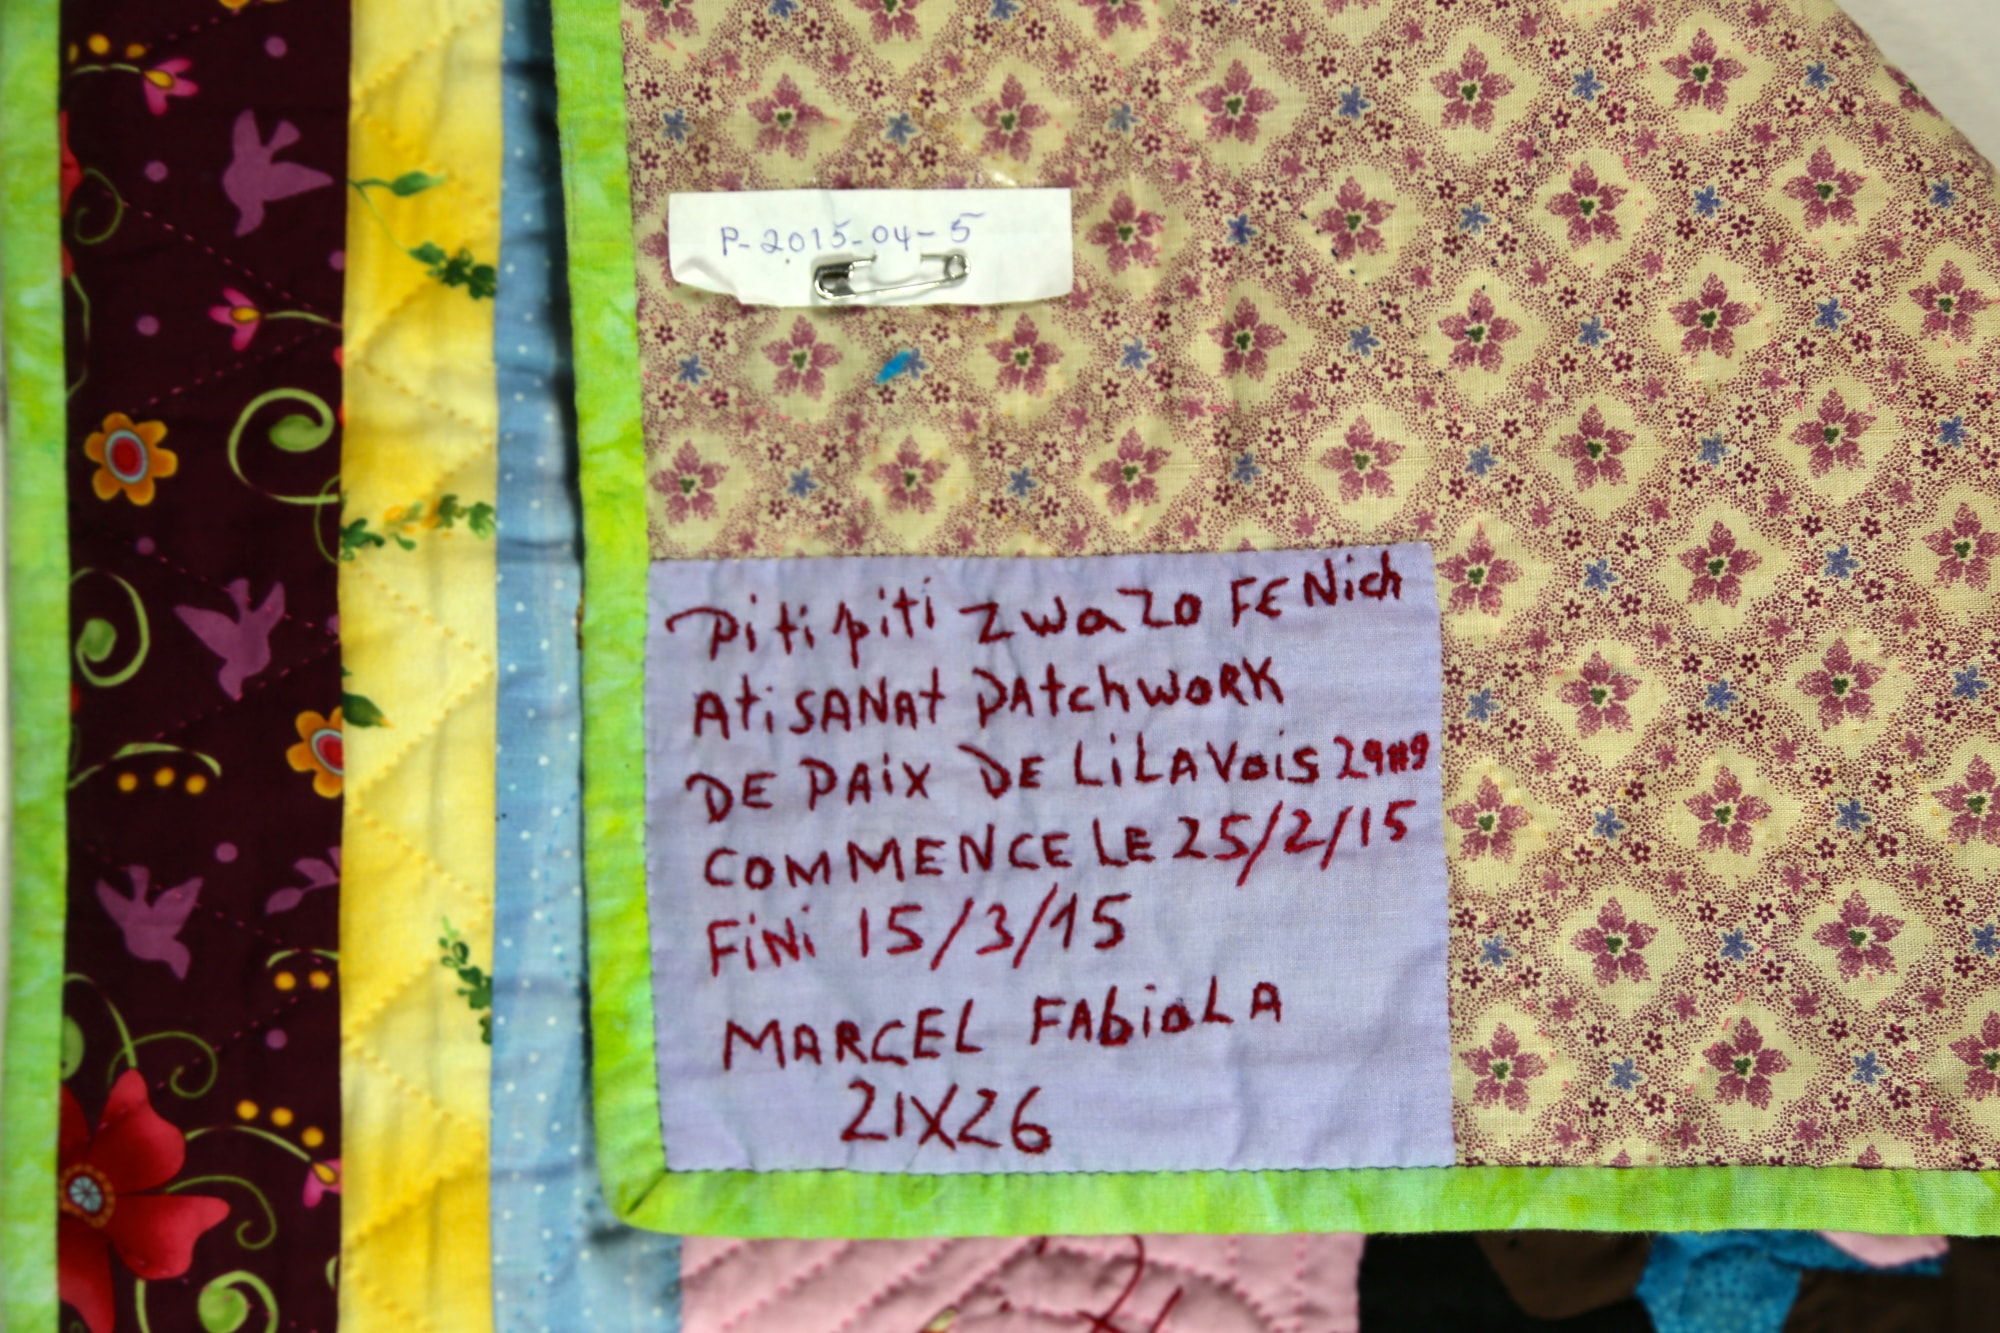 P-2015-04-5
Piti piti zwazo FE Nich
AtiSANAt PAtchwORK
DE PAix DE LiLAVois 29#9
COMMENCE LE 25/2/15
FiNi 15/3/15
MARCEL FAbiOLA
21X26